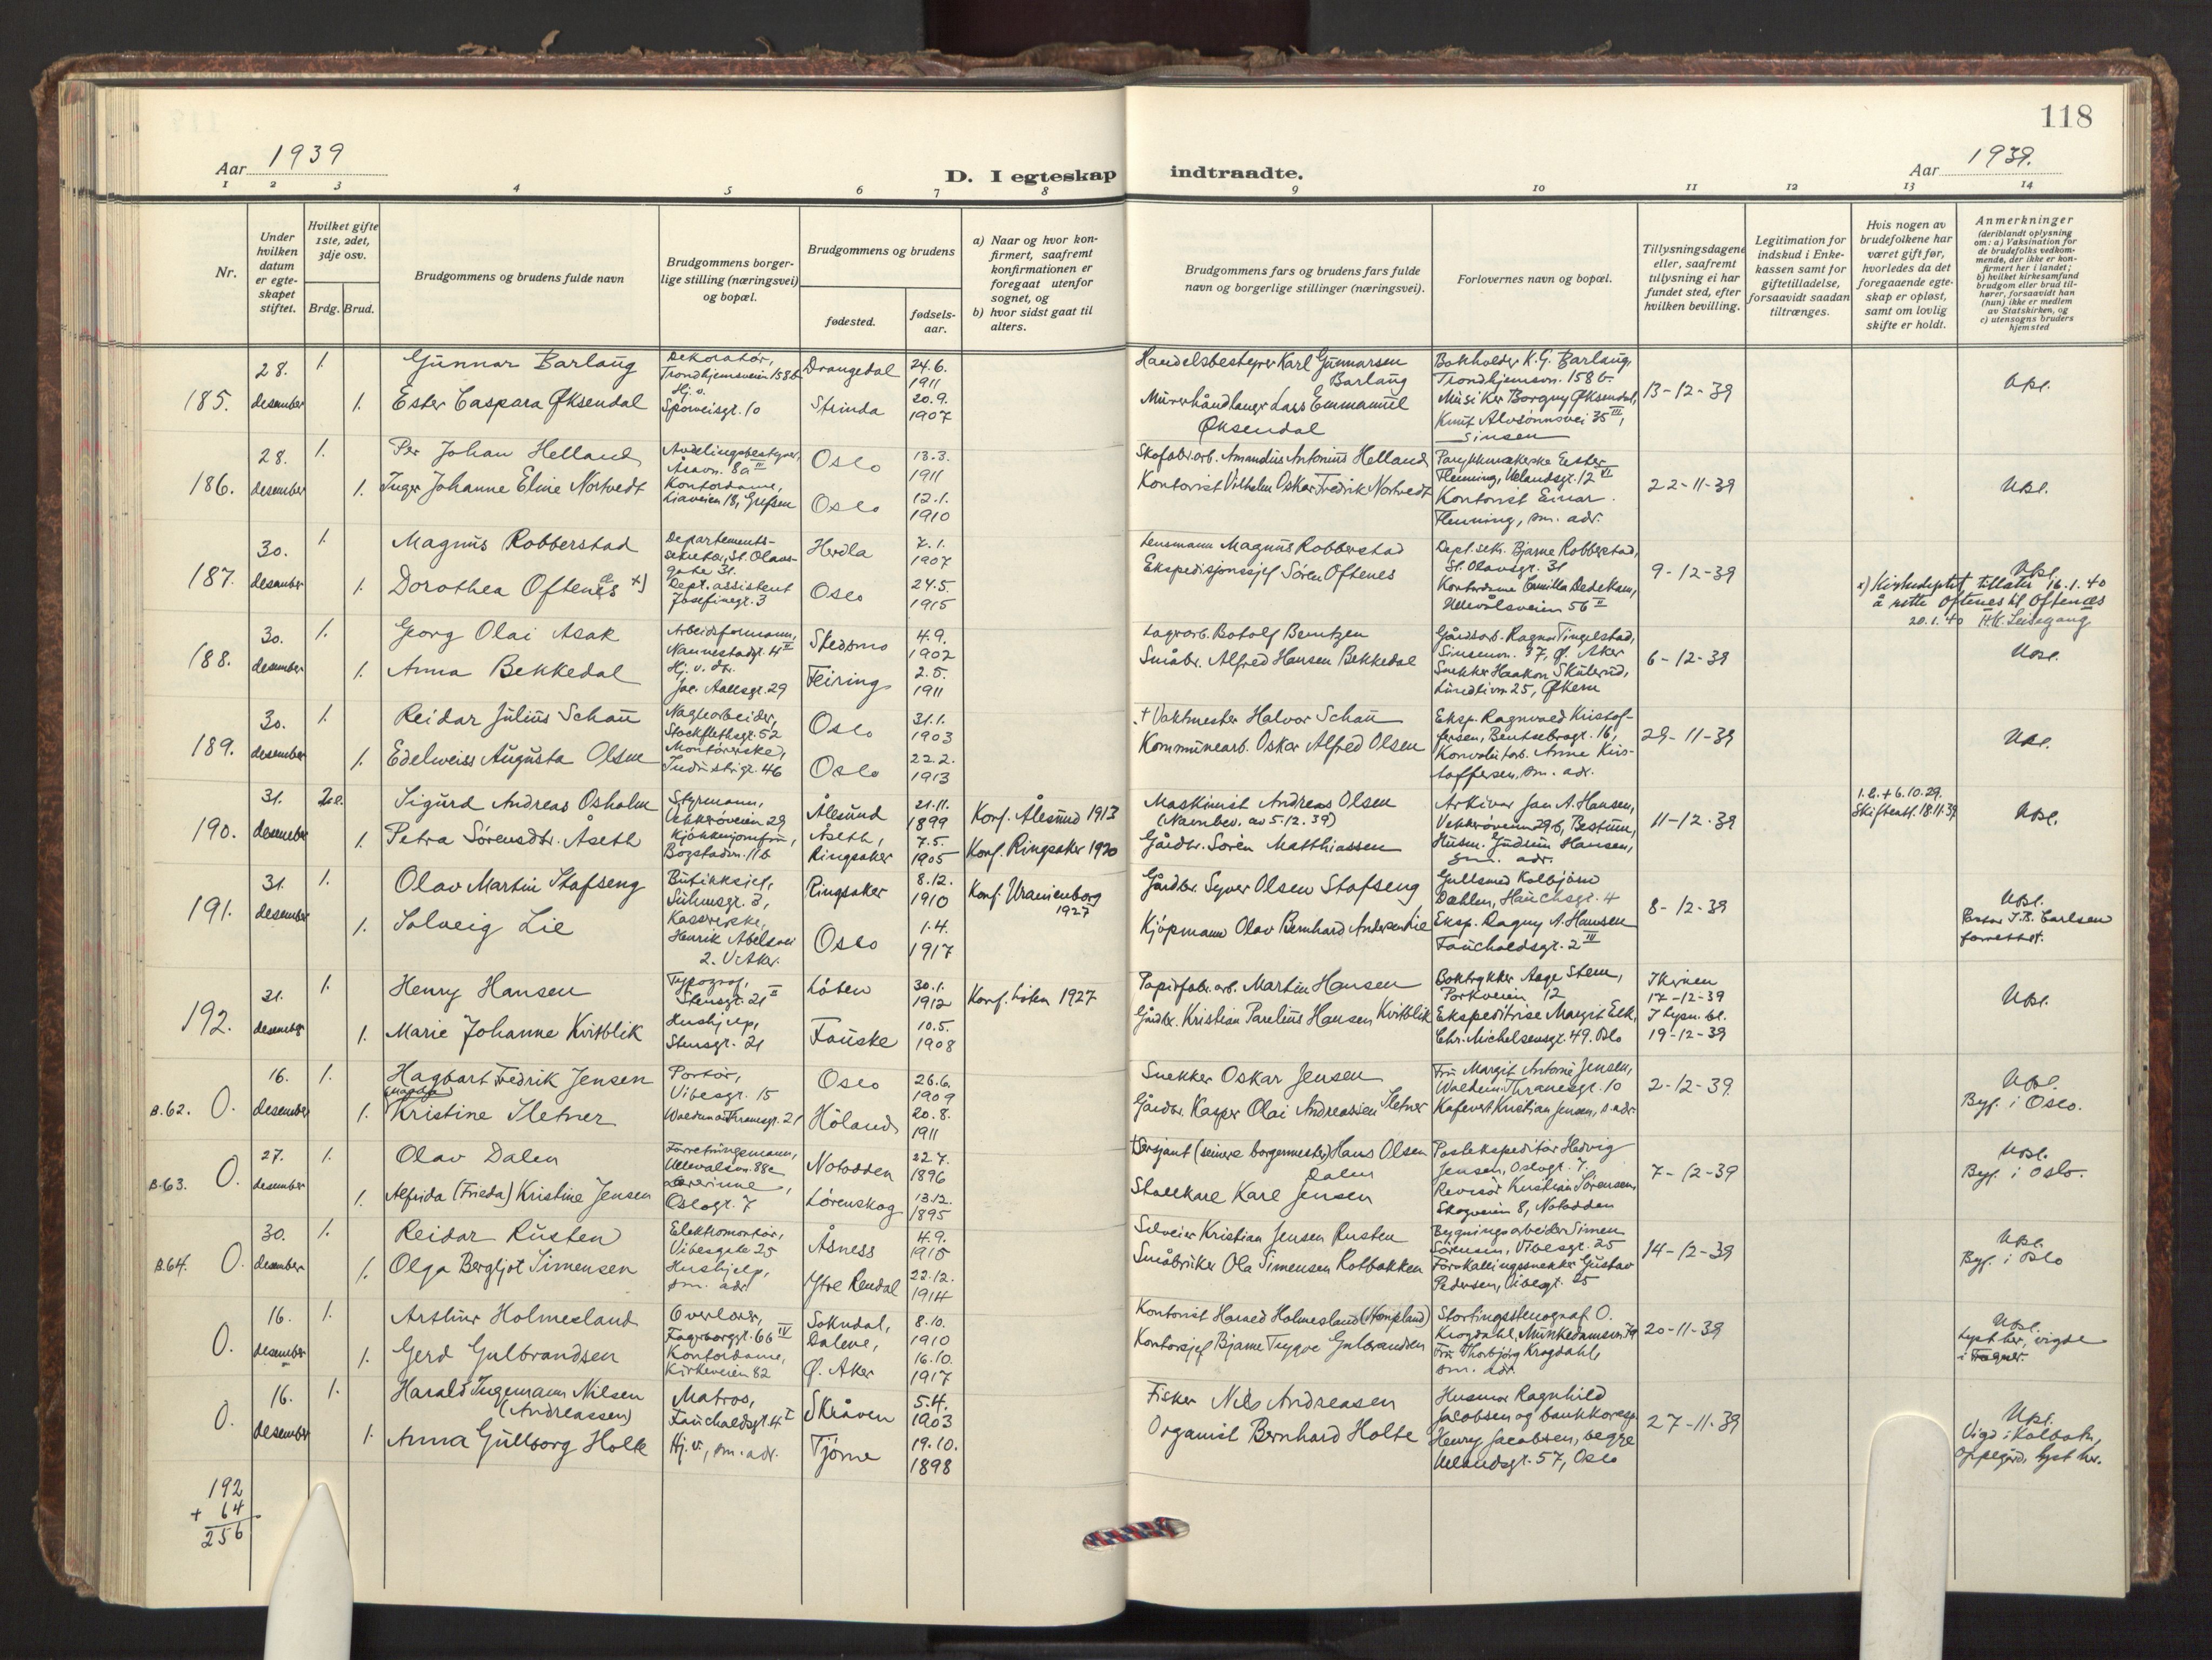 118
Aar 1939
D. I egteskap indtraadte.
Aar 1939.
1 2 3 4 5 6 7 8 9 10 11 12 13 14
Nr.
Under hvilken datum er egteskapet stiftet.
Hvilket gifte 1ste, 2det, 3dje osv.
Brdg. Brud.
Brudgommens og brudens fulde navn
Brudgommens borgerlige stilling (næringsvei) og bopæl.
Brudgommens og brudens
fødested.
fødselsaar.
a) Naar og hvor konfirmert, saafremt konfirmationen er foregaat utenfor sognet, og
b) hvor sidst gaat til alters.
Brudgommens fars og brudens fars fulde navn og borgerlige stillinger (næringsvei).
Forlovernes navn og bopæl.
Tillysningsdagene eller, saafremt tillysning ei har fundet sted, efter hvilken bevilling.
Legitimation for indskud i Enkekassen samt for giftetilladelse, forsaavidt saadan tiltrænges.
Hvis nogen av brudefolkene har været gift før, hvorledes da det foregaaende egteskap er opløst, samt om lovlig skifte er holdt.
Anmerkninger
(deriblandt oplysning om: a) Vaksination for de brudefolks vedkommende, der ikke er konfirmert her i landet; b) hvilket kirkesamfund brudgom eller brud tilhører, forsaavidt han (hun) ikke er medlem av Statskirken, og c) utensogns bruders hjemsted
185. 28. desember 1. Gunnar Barlaug Dekoratør, Trondhjemsveien 158b Drangedal 24.6. 1911
1. Ester Caspara Øksendal Hj. v. Sporveisgt. 10 Strinda 20.9. 1907
Handelsbestyrer Karl Gunnarsen Barlaug
Murerhåndlanger Lars Emmanuel Øksendal
Bokholder K.G. Barlaug, Trondhjemsvn. 158b.
Musiker Borgny Øksendal, Knut Alvsønnsvei 35 III, Sinsen
13-12-39
186. 28. desember 1. Per Johan Helland Avdelingsbestyrer, Åsavn. 8a III Oslo 13.3. 1911
1. Inger Johanne Eline Nortvedt Kontordame, Liaveien 18, Grefsen Oslo 12.1. 1910
Skofabr.arb. Amandus Antonius Helland
Kontorist Vilhelm Oskar Fredrik Nortvedt
Parykkmakerske Ester Fleming, Uelandsgt. 12 VI
Kontorist Einar Fleming, sm. adr.
22-11-39
187. 30. desember 1. Magnus Robberstad Departementssekretær, St. Olavsgate 31. Herdla 7.1. 1907
1. Dorothea Oftenes x) Dept. assistent Josefinegt. 3 Oslo 24.5. 1915
Lensmann Magnus Robberstad
Ekspedisjonssjef Sören Oftenes
Dept. sekr. Bjarne Robberstad, St. Olavsgt. 31
Kontordame Camilla Dedekam, Ullevålsveien 56 II
9-12-39
x) Kirkedeptet tillater 16.1.40 å rette Oftenes til Oftenæs
20.1.40
188. 30. desember 1. Georg Olai Asak Arbeidsformann, Nannestadgt. 4 II Skedsmo 4.9. 1902
1. Anna Bekkedal Hj. v. dr. Jac. Aallsgt. 29 Feiring 2.5. 1911
Lagerarb. Botolf Berntzen
Småbr. Alfred Hansen Bekkedal
Gårdsarb. Ragnar Tingelstad, Sinsenvn. 37, Ø. Aker
Snekker Haakon Skulerud, Lundlivn 25, Økern
6-12-39
189. 30. desember 1. Reidar Julius Schau Naglearbeider, Stockflethsgt. 52 Oslo 31.1. 1903
1. Edelweiss Augusta Olsen Montörerske, Industrigt. 46 Oslo 22.2. 1913
+ Vaktmester Halvor Schau
Kommunearb. Oskar Alfred Olsen
Eksp. Ragnvald Kristoffersen, Bentsebrogt. 16,
Konvoluttarb. Anne Kristoffersen, sm. adr.
29-11-39
190. 31. desember 2e. Sigurd Andreas Osholm Styrmann, Vekkerøveien 29 Ålesund 21.11. 1899 Konf. Ålesund 1913
1. Petra Sörensdtr. Åseth Kjøkkenjomfru, Bogstadvn. 11b Åseth, Ringsaker 7.5. 1905 Konf. Ringsaker 1920
Maskinist Andreas Olsen (Navnbev. av 5.12.39)
Gårdbr. Sörén Matthiassen
Arkivar Jan A. Hansen, Vekkerøveien 29b, Bestum,
Husm. Gudrun Hansen, sm. adr.
11-12-39
1.e. + 6.10.29. Skifteatt. 18.11.39
191. 31. desember 1. Olav Martin Stafseng Butikksjef, Suhmsgt. 3, Ringsaker 8.12. 1910 Konf. Uranienborg 1927
1. Solveig Lie Kassererske, Henrik Abelsvei 2. V. Aker. Oslo 1.4. 1917
Gårdbr. Syver Olsen Stafseng
Kjöpmann Olav Bernhard Andersen Lie
Gullsmed Kolbjörn Dæhlen, Hauchsgt. 4
Eksp. Dagny A. Hansen Fauchaldsgt. 2 III
8-12-39
Pastor T.B. Carlsen forrettet.
192. 31. desember 1. Henry Hansen Typograf, Stensgt. 21 II Löten 30.1. 1912 Konf. Löten 1927
1. Marie Johanne Kvitblik Hushjelp, Stensgt. 21 Fauske 10.5. 1908
Papirfabr.arb. Martin Hansen
Gårdbr. Kristian Parelius Hansen Kvitblik
Boktrykker Aage Stem, Parkveien 12
Ekspeditrise Margit Eek, Chr. Michelsensgt. 49. Oslo
I kirken 17-12-39
I lysn. bl. 19-12-39
B.62. O. 16. desember 1. Hagbart Fredrik Jensen Portör, Vibesgt. 15 Oslo 26.6. 1909
1. Kristine Sletner Waldemar Thranesgt. 21 Höland 20.8. 1911
Snekker Oskar Jensen
Gårdbr. Kasper Olai Andreassen Sletner
Fru Margit Antonie Jensen, Waldem. Thranesgt. 10
Kafevert Kristian Jensen, s. adr.
2-12-39.
Byf. i Oslo.
B.63. O. 27. desember 1. Olav Dalen Forretningsmann, Ullevålsvn. 88c Notodden 22.7. 1896
1. Alfrida (Frieda) Kristine Jensen Lærerinne, Oslogt. 7 Lørenskog 13.12. 1895
+ Sersjant (seinere borgermester) Hans Olsen Dalen
Stallkarl Karl Jensen
Postekspeditør Hedvig Jensen, Oslogt. 7.
Revisör Kristian Sörensen, Skogveien 8, Notodden
7-12-39
Byf. i Oslo.
B.64. O. 30. desember 1. Reidar Rusten Elektromontör, Vibesgate 25 Åsness 4.9. 1915
1. Olga Bergljot Simensen Hushjelp, sm. adr. Ytre Rendal 22.12. 1914
Selveier Kristian Jensen Rusten
Småbruker Ola Simensen Rotbakken
Bygningsarbeider Simen Sörensen, Vibesgt. 25
Forskallingssnekker Gustav Pedersen, Vibesgt. 25
14-12-39
Byf. i Oslo
O. 16. desember 1. Arthur Holmesland Overlærer, Fagerborggt. 66 IV Sokndal, Dalene, 8.10. 1910
1. Gerd Gulbrandsen Kontordame, Kirkeveien 82 Ø. Aker 16.10. 1917
Kontorist Harald Holmesland (Hompland)
Kontorsjef Bjarne Trygve Gulbrandsen
Stortingsstenograf O. Krogdahl, Munkedamsvn. 79
Fru Thorbjörg Krogdahl, sm. adr.
20-11-39
Lyst her, vigde i Frogner.
O. 16. desember 1. Harald Ingemann Nilsen (Andreassen) Matros, Fauchaldsgt. 4 I Skråven 5.4. 1903
1. Anna Gullborg Holte Hj. v., sm. adr. Tjøme 19.10. 1898
Fisker Nils Andreasen
Organist Bernhard Holte
Husmor Ragnhild Jacobsen og bankkoresp. Henry Jacobsen, begge Uelandsgt. 57, Oslo
27-11-39
Vigd i Kolbotn, Oppegård, lyst her.
192
+ 64
256